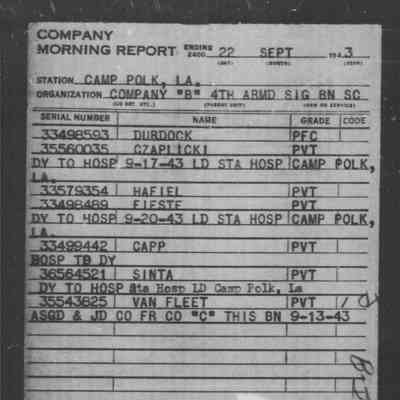 COMPANY
MORNING REPORT ENDING 2400 22 SEPT 1943
(DAY) (MONTH) (YEAR)
STATION CAMP POLK, LA.
ORGANIZATION COMPANY "B" 4TH ARMD SIG BN SC
(CO DET. ETC.) (PARENT UNIT) (ARM OR SERVICE)
SERIAL NUMBER NAME GRADE CODE
33498593 DURDOCK PFC
35560035 CZAPLICKI PVT
DY TO HOSP 9-17-43 LD STA HOSP CAMP POLK,
LA.
33579354 HAFIEL PVT
33498489 FIESTE PVT
DY TO HOSP 9-20-43 LD STA HOSP CAMP POLK,
LA.
33499442 CAPP PVT
HOSP TO DY
36564521 SINTA PVT
DY TO HOSP Sta Hosp LD Camp Polk, La
35543625 VAN FLEET PVT
ASGD & JD CO FR CO "C" THIS BN 9-13-43